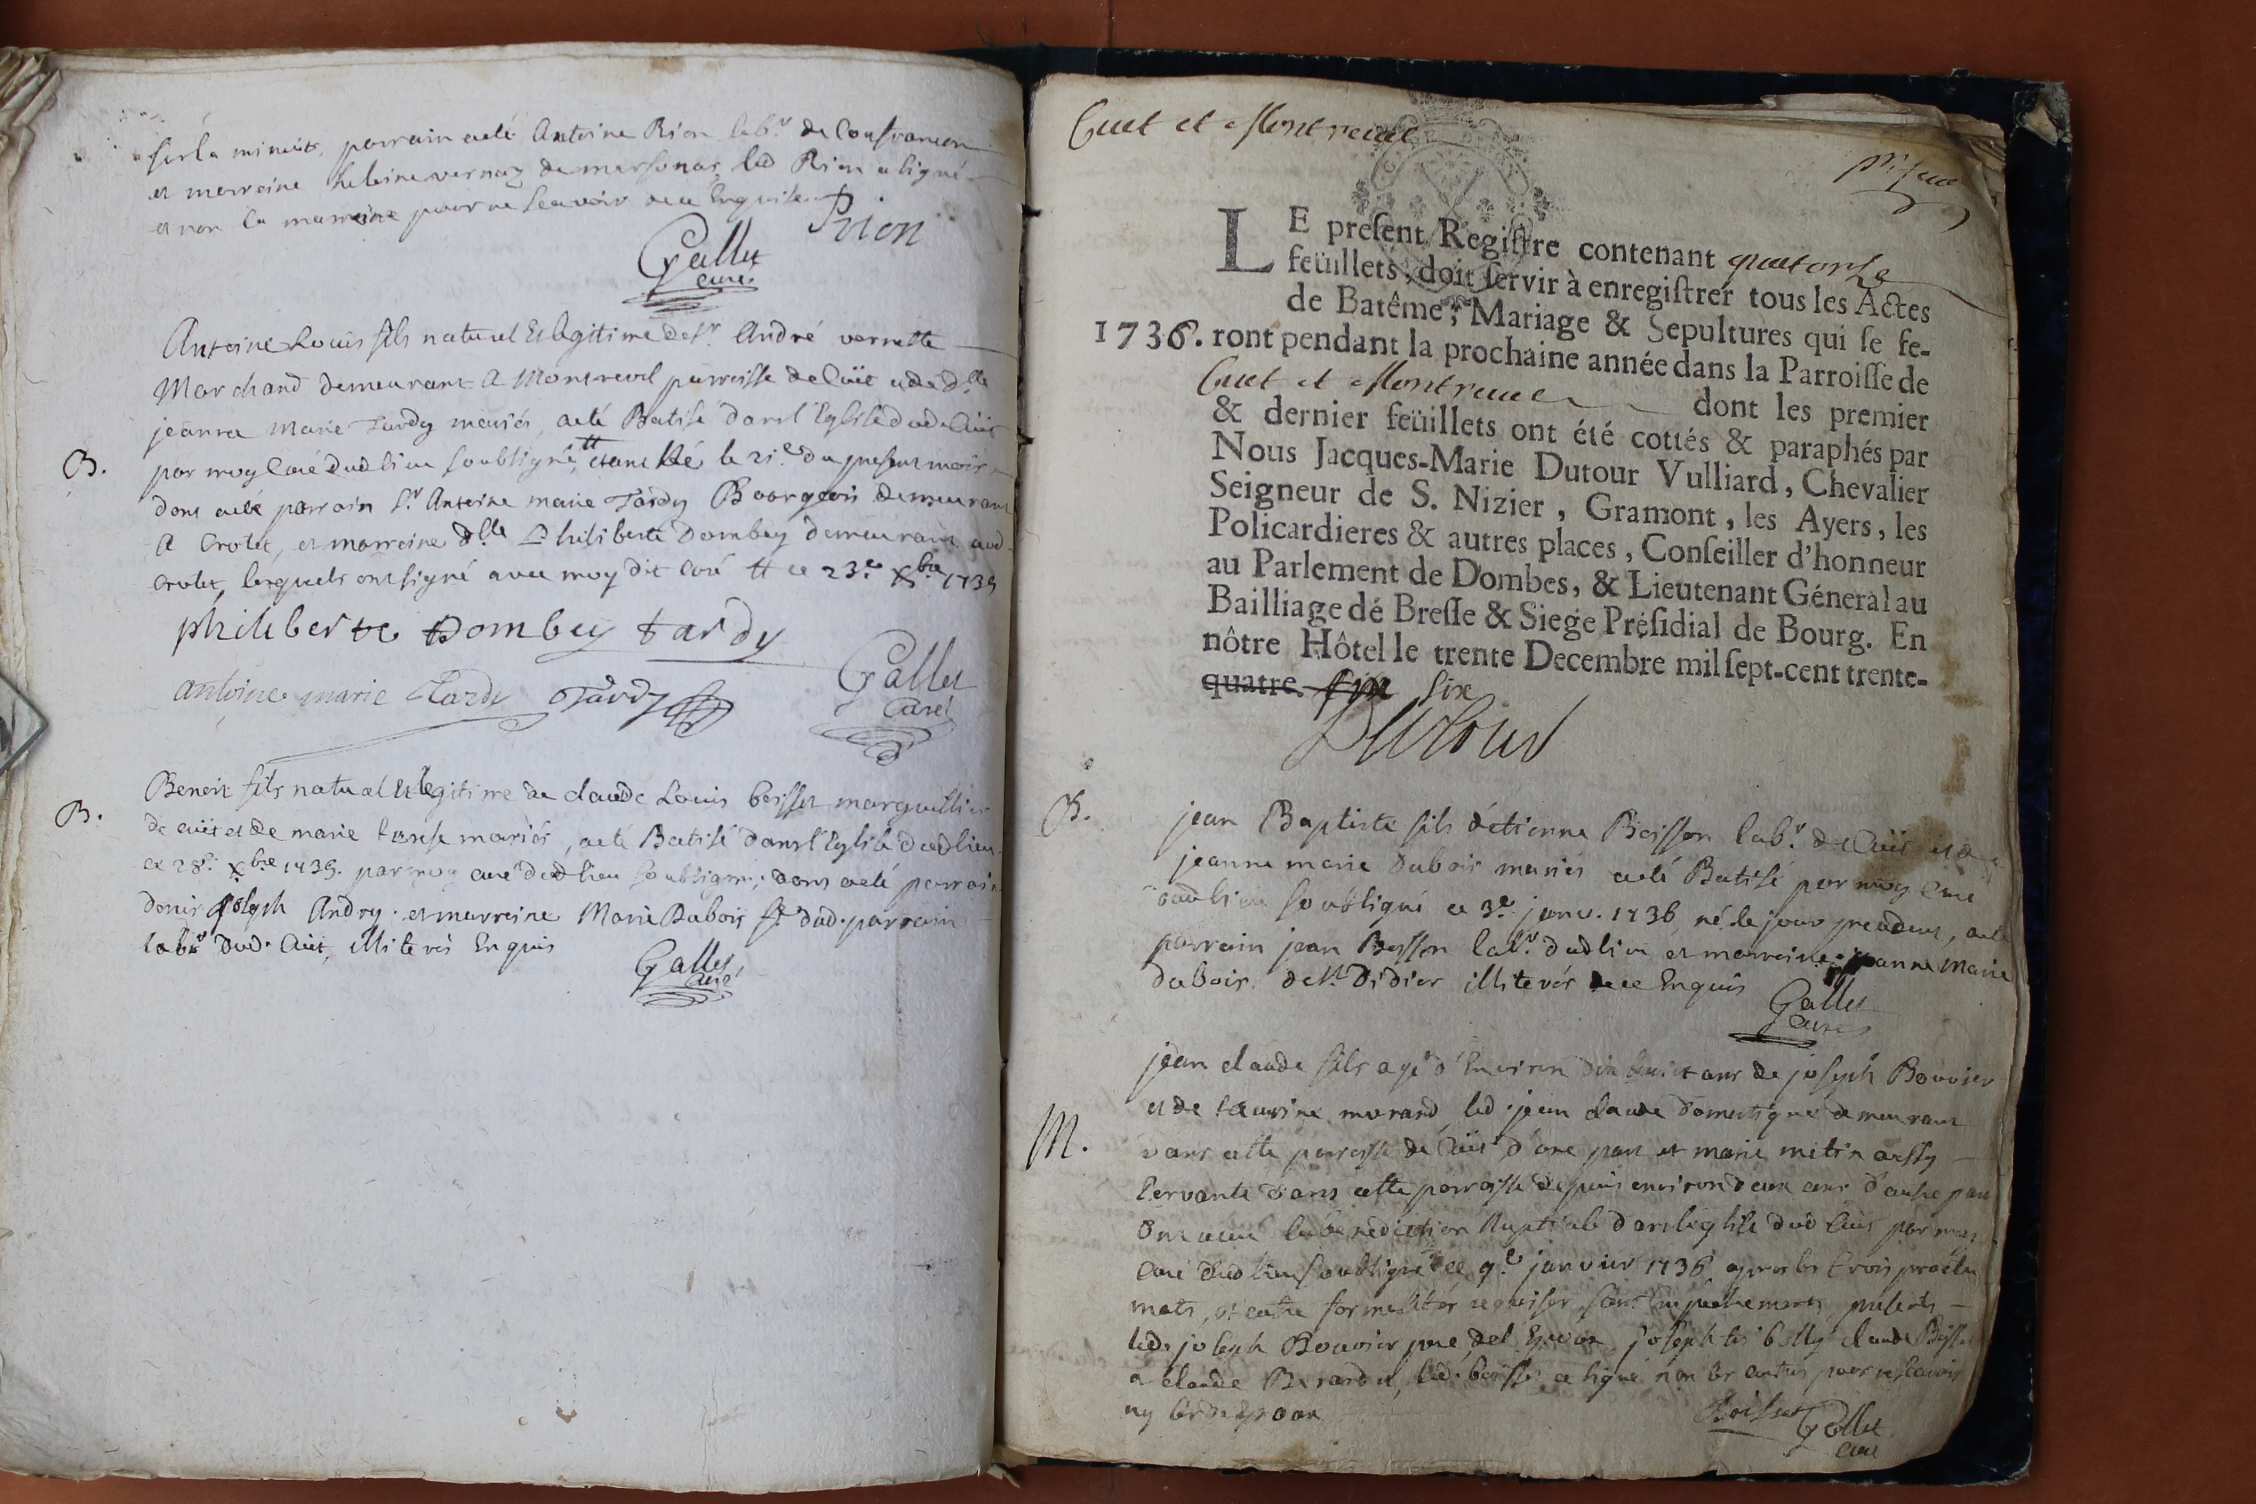 sur la minuit, parrain a eté Antoine Rion lab.r de Confrancon
et marraine heleine vernay de marsonas, led Rion a signé
et non la marraine pour ne scavoir de ce Enquise
Rion
Gallet
curé
Antoine Louis fils naturel et legitime de s.r André vernette
Marchand demeurant a Montreval parroisse de Cüet et de d.lle
jeanne Marie Tardy mariés, a eté Batisé dans l'Eglise dud. Cüet
B.
par moy Curé dud lieu soubsigné, etant Né le 21.e du present mois
dont a eté parrain s.r Antoine marie Tardy Bourgeois demeurant
A Crotet, et marreine d.lle Philiberte Dombey demeurant aud
crotet, lesquels ont signé avec moy dit curé tt ce 23.e Xbre 1735
philiberte Dombey tardy
antoine marie Tardy Tardy
Gallet
Curé
Benoit fils naturel et legitime de claude Louis boisset marguillier
B.
de cüet et de marie mariés, a eté Batisé dans l'Eglise dud lieu
ce 28.e Xbre 1735. par moy curé dud lieu soubsigné; dont a eté parrain
denis joseph Andry. et marreine Marie Dubois fe dud. parrain
labr dud. Cüet, illiterés Enquis
Gallet
Curé
Cuet et Montreval
pr. feuil
LE present Registre contenant quatorse
feüillets, doit servir à enregistrer tous les Actes
de Batême, Mariage & Sepultures qui se fe-
1736. ront pendant la prochaine année dans la Parroisse de
Cuet et Montreval dont les premier
& dernier feüillets ont été cottés & paraphés par
Nous Jacques-Marie Dutour Vulliard, Chevalier
Seigneur de S. Nizier, Gramont, les Ayers, les
Policardieres & autres places, Conseiller d'honneur
au Parlement de Dombes, & Lieutenant Géneral au
Bailliage de Bresse & Siege Présidial de Bourg. En
nôtre Hôtel le trente Decembre mil sept-cent trente-
quatre. six
Dutour
B.
jean Baptiste fils d'etienne Boisson lab.r de Cüet et de
jeanne marie Dubois mariés a eté Batisé par moy Curé
dud lieu soubsigné ce 3.e janv. 1736, né le jour precedent, a eté
parrain jean Boisson lab.r dud lieu et marreine jeanne Marie
dubois de s.t Didier illiterés de ce Enquis
Gallet
curé
jean claude fils agé d'Environ dix huit ans de joseph Bouvier
et de morand, led. jean claude Domestique demeurant
M.
dans cette parroisse de Cüet d'une part et marie
servante dans cette parroisse depuis environ deux ans d'autre part
Ont receu la benediction Nuptiale dans l'eglise dud Cüet par moy
Curé dud lieu soubsigné ce 9.e janvier 1736 apres les trois procla
mats, et autre formalités requises sans Empechements presents
led. joseph Bouvier pere del' Epoux, joseph claude
et claude Berardet, led. boisset a signé non les autres pour ne scavoir
ny led Epoux
Boisset
Gallet
curé